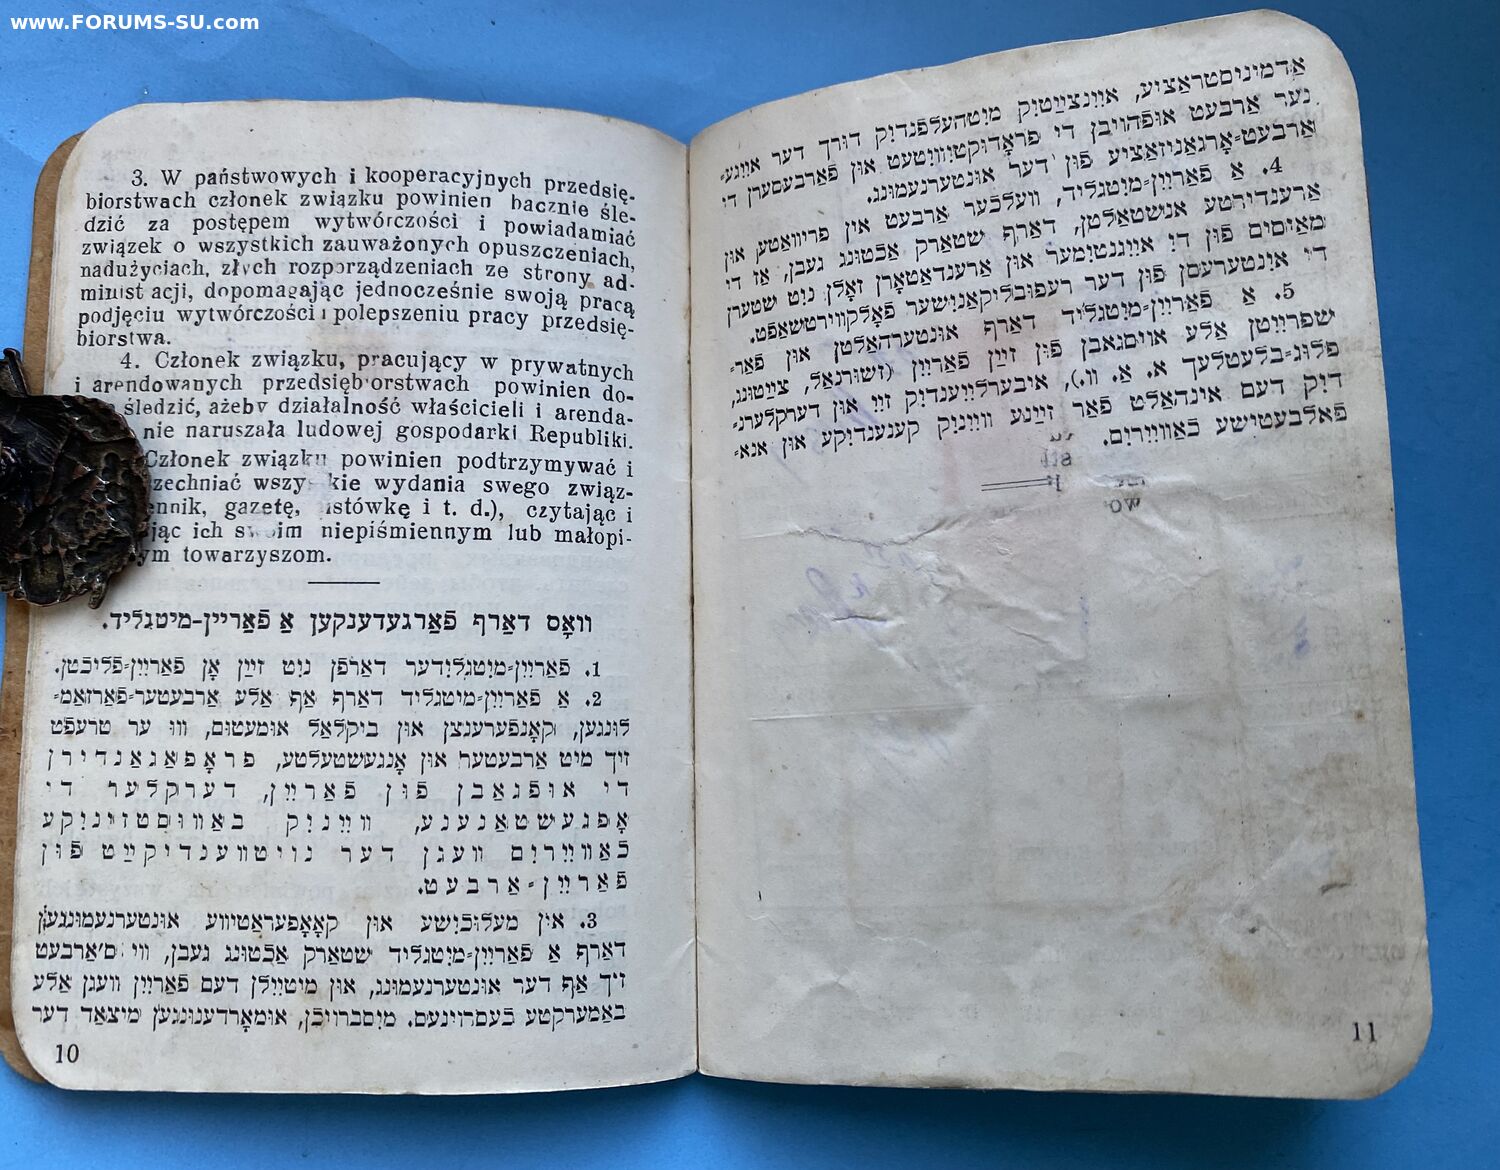 www.FORUMS-SU.com
3. W państwowych i kooperacyjnych przedsię-
biorstwach członek związku powinien bacznie śle-
dzić za postępem wytwórczości i powiadamiać
związek o wszystkich zauważonych opuszczeniach,
nadużyciach, złych rozporządzeniach ze strony ad-
minist acji, dopomagając jednocześnie swoją pracą
podjęciu wytwórczości i polepszeniu pracy przedsię-
biorstwa.
4. Członek związku, pracujący w prywatnych
i arendowanych przedsiębiorstwach powinien do-
śledzić, ażeby działalność właścicieli i arenda-
nie naruszała ludowej gospodarki Republiki.
Członek związku powinien podtrzymywać i
zechniać wszys kie wydania swego związ-
ennik, gazetę, istówkę i t. d.), czytając i
jąc ich swoim niepiśmiennym lub małopi-
ym towarzyszom.
וואָס דאַרף פֿאַרגעדענקען אַ פֿאַריין-מיטגליד.
1. פֿאַריין-מיטגלידער דאַרפֿן ניט זיין אָן פֿאַריין-פּליכטן.
2. אַ פֿאַריין-מיטגליד דאַרף אַף אַלע אַרבעטער-פֿאַרזאַמ-
לונגען, קאָנפֿערענצן און ביקלאַל אומעטום, וווּ ער טרעפֿט
זיך מיט אַרבעטער און אָנגעשטעלטע, פּראָפּאַגאַנדירן
די אופֿגאַבן פֿון פֿאַריין, דערקלער די
אָפּגעשטאַנענע, וויניק באַוווּסטזיניקע
כאַוויירים וועגן דער נויטווענדיקייט פֿון
פֿאַריין-אַרבעט.
3. אין מעלוכישע און קאָאָפּעראַטיווע אונטערנעמונגען
דאַרף אַ פֿאַריין-מיטגליד שטאַרק אַכטונג געבן, ווי ס'אַרבעט
זיך אַף דער אונטערנעמונג, און מיטיילן דעם פֿאַריין וועגן אַלע
באַמערקטע כעסרוינעס. מיסברויכן, אומאָרדענונגען מיצאַד דער
10
אַדמיניסטראַציע, איינצייטיק מיטהעלפֿנדיק דורך דער אייגע-
נער אַרבעט אופֿהויבן די פּראָדוקטיוויטעט און פֿאַרבעסערן די
אַרבעט-אָרגאַניזאַציע פֿון דער אונטערנעמונג.
4. אַ פֿאַריין-מיטגליד, וועלכער אַרבעט אין פּריוואַטע און
אַרענדירטע אנשטאַלטן, דאַרף שטאַרק אַכטונג געבן, אַז די
מאַיסים פֿון די אייגנטימער און אַרענדאַטאָרן זאָלן ניט שטערן
די אינטערעסן פֿון דער רעפּובליקאַנישער פֿאָלקווירטשאַפֿט.
5. אַ פֿאַריין-מיטגליד דאַרף אונטערהאַלטן און פֿאַר-
שפּרייטן אַלע אויסגאַבן פֿון זיין פֿאַריין (זשורנאַל, צייטונג,
פֿלוג-בלעטלעך א. אַ. וו.), איבערלייענדיק זיי און דערקלערנ-
דיק דעם אינהאַלט פֿאַר זיינע וויניק קענענדיקע און אנא-
פֿאַלבעטישע כאַוויירים.
11